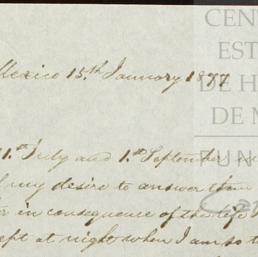 CEN
EST
Mexico 15.th January 1877
DE H
DE M
1.st July and 1.st September
FUN
my desire to answer them
Car
in consequence of the life
ept at night when I am so t